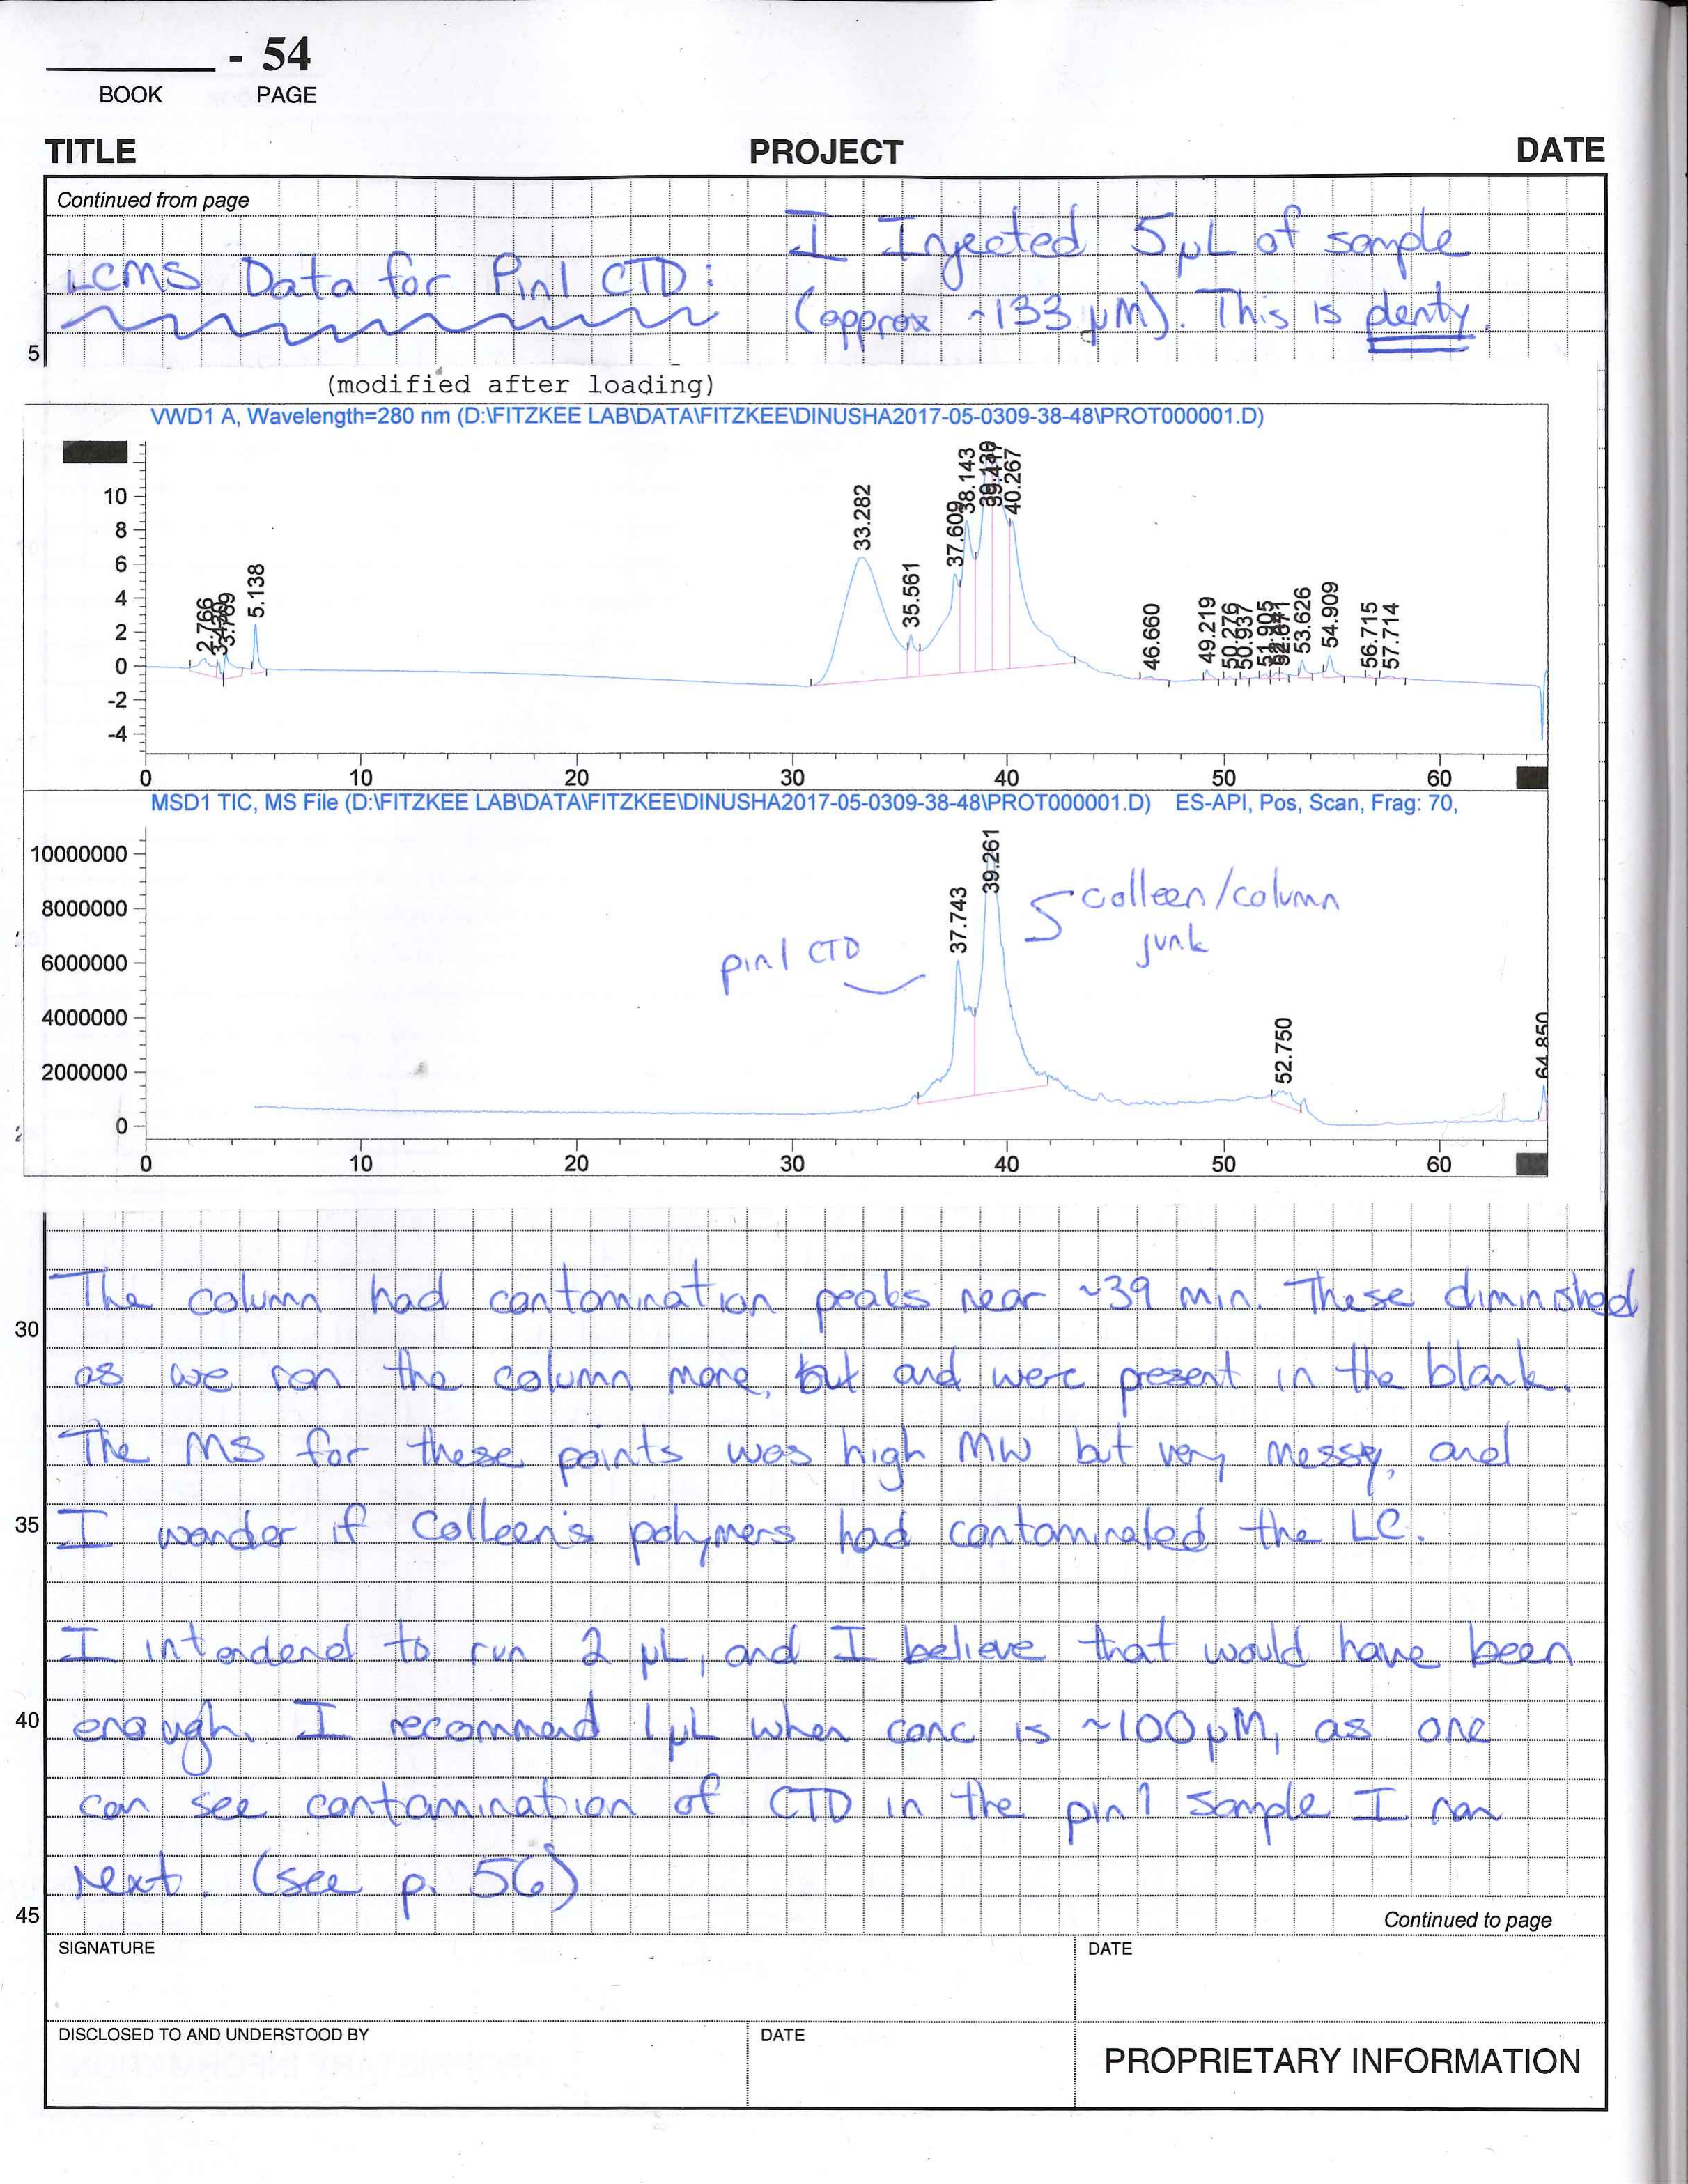 - 54
BOOK PAGE
TITLE PROJECT DATE
Continued from page
I Injected 5 µL of sample
LCMS Data for Pin1 CTD:
(approx ~133 µM). This is plenty.
5
(modified after loading)
VWD1 A, Wavelength=280 nm (D:\FITZKEE LAB\DATA\FITZKEE\DINUSHA2017-05-0309-38-48\PROT000001.D)
10
8
6
4
2
0
-2
-4
2.766
3.769
5.138
33.282
35.561
37.609
38.143
39.130
39.417
40.267
46.660
49.219
50.276
50.937
51.905
53.626
54.909
56.715
57.714
0 10 20 30 40 50 60
MSD1 TIC, MS File (D:\FITZKEE LAB\DATA\FITZKEE\DINUSHA2017-05-0309-38-48\PROT000001.D) ES-API, Pos, Scan, Frag: 70,
10000000
8000000
6000000
4000000
2000000
0
37.743
39.261
52.750
64.850
Colleen/column
junk
pin1 CTD
0 10 20 30 40 50 60
The column had contamination peaks near ~39 min. These diminished
30
as we ran the column more, but and were present in the blank.
The MS for these points was high MW but very messy, and
35
I wonder if Colleen's polymers had contaminated the LC.
I intended to run 2 µL, and I believe that would have been
40
enough. I recommend 1µL when conc is ~100µM, as one
can see contamination of CTD in the pin1 sample I ran
next. (see p. 56)
45
Continued to page
SIGNATURE DATE
DISCLOSED TO AND UNDERSTOOD BY DATE
PROPRIETARY INFORMATION